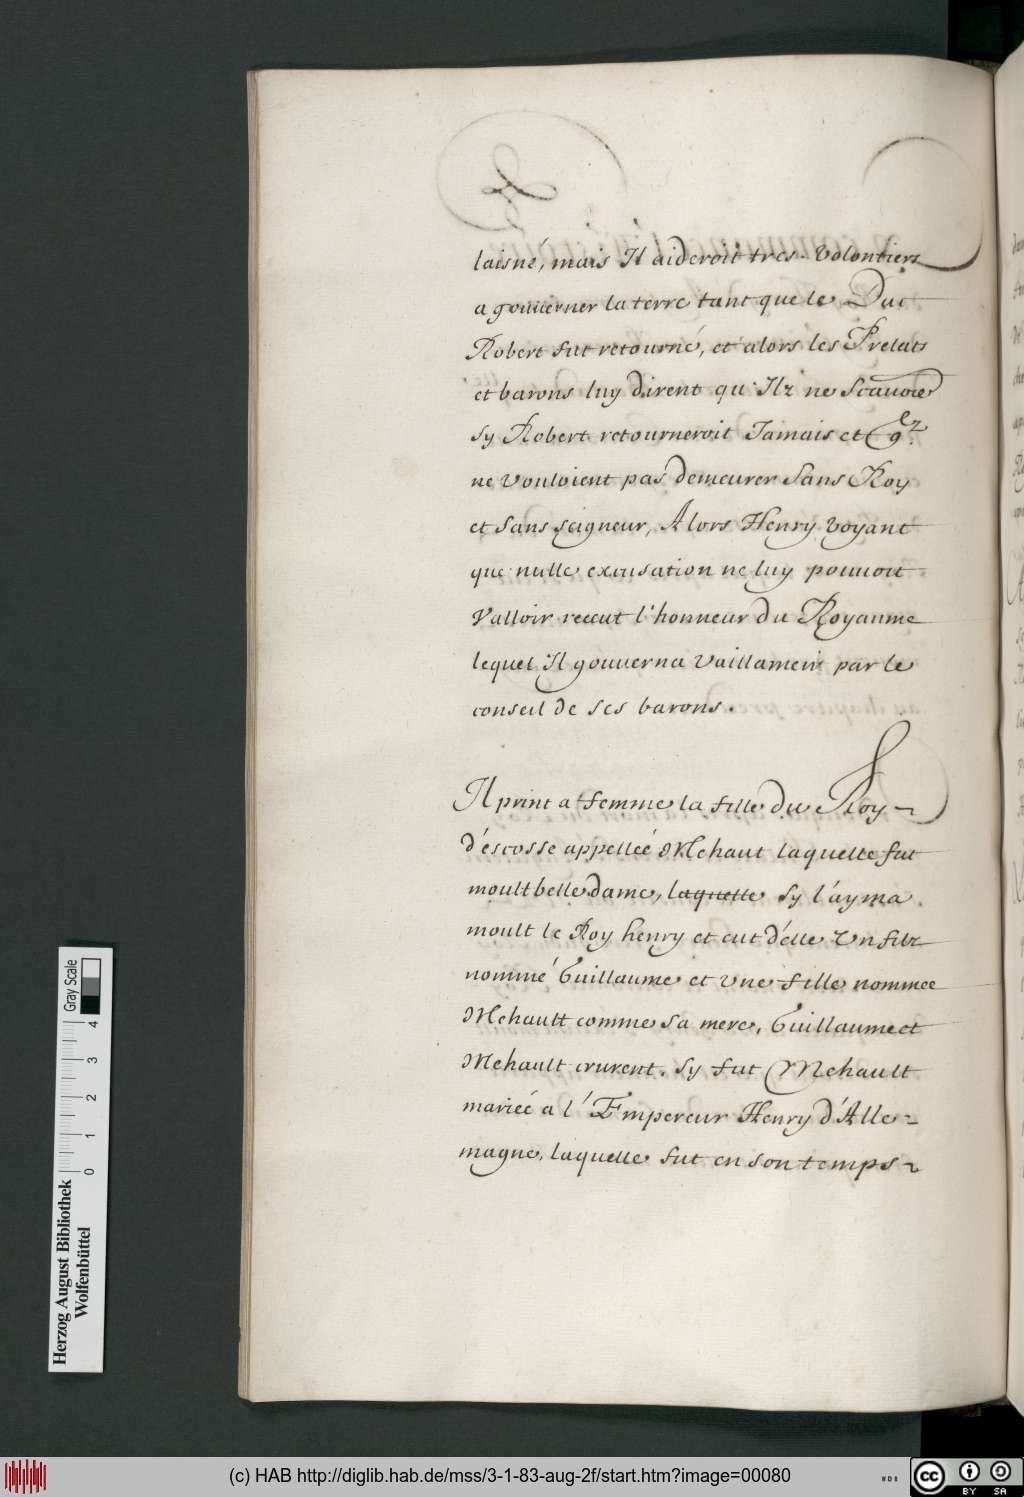 laisné, mais Il aideroit tres-volontiers
a gouuerner la terre tant que le Duc
Robert fut retourné, et alors les Prelats
et barons luy dirent qu'Ilz ne Scauoie
sy Robert retourneroit Jamais et
ne vouloient pas demeurer Sans Roy
et Sans seigneur, Alors Henry voyant
que nulle excusation ne luy pouuoit
Valloir receut l'honneur du Royaume
lequel Il gouuerna vaillamein par le
conseil de ses barons.
Il print a femme la fille du Roy
d'éscosse appelleé Mehaut laquelle fut
moult belle dame, laquelle sy l'áyma
moult le Roy henry et eut d'élle Vn filz
nommé Guillaume et vne fille nommee
Mehault comme sa mere, Guillaume et
Mehault crurent, sy fut Mehault
marieé a l'Empereur Henry d'Alle=
magne, laquelle fut en son temps
Herzog August Bibliothek
Wolfenbüttel
Gray Scale
0 1 2 3 4
(c) HAB http://diglib.hab.de/mss/3-1-83-aug-2f/start.htm?image=00080
WDB
cc BY SA